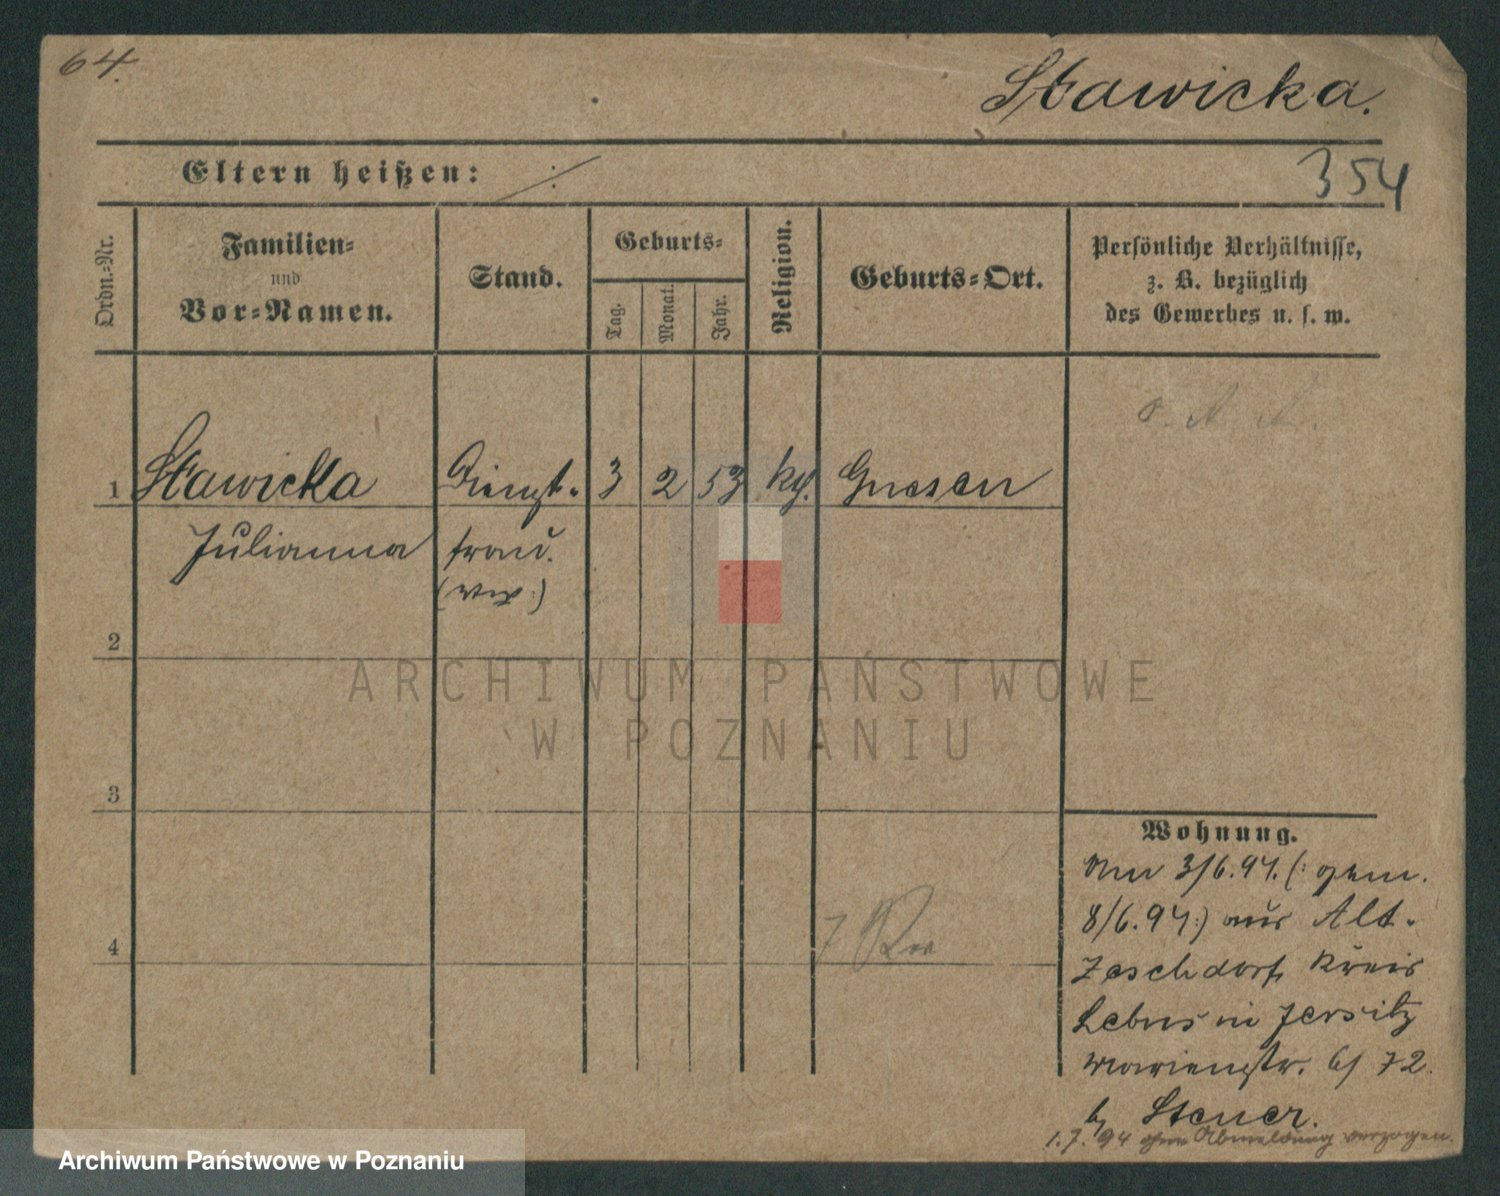 64.
Stawicka.
Eltern heißen: ./.
354
Ordn.-Nr.
Familien-
und
Vor-Namen.
Stand.
Geburts-
Tag.
Monat.
Jahr.
Religion.
Geburts-Ort.
Persönliche Verhältnisse,
z. B. bezüglich
des Gewerbes u. s. w.
1 Stawicka Dienst- 3 2 53 kth. Gnesen
Julianna frau.
2
3
4
Wohnung.
3/6.94. (: gem.
8/6.94:) aus Alt-
Zeschdorf, Kreis
Lebus in Jersitz
Marienstr. 72.
b/ Steuer.
1.7.94 ohne Abmeldung verzogen.
ARCHIWUM PAŃSTWOWE
W POZNANIU
Archiwum Państwowe w Poznaniu